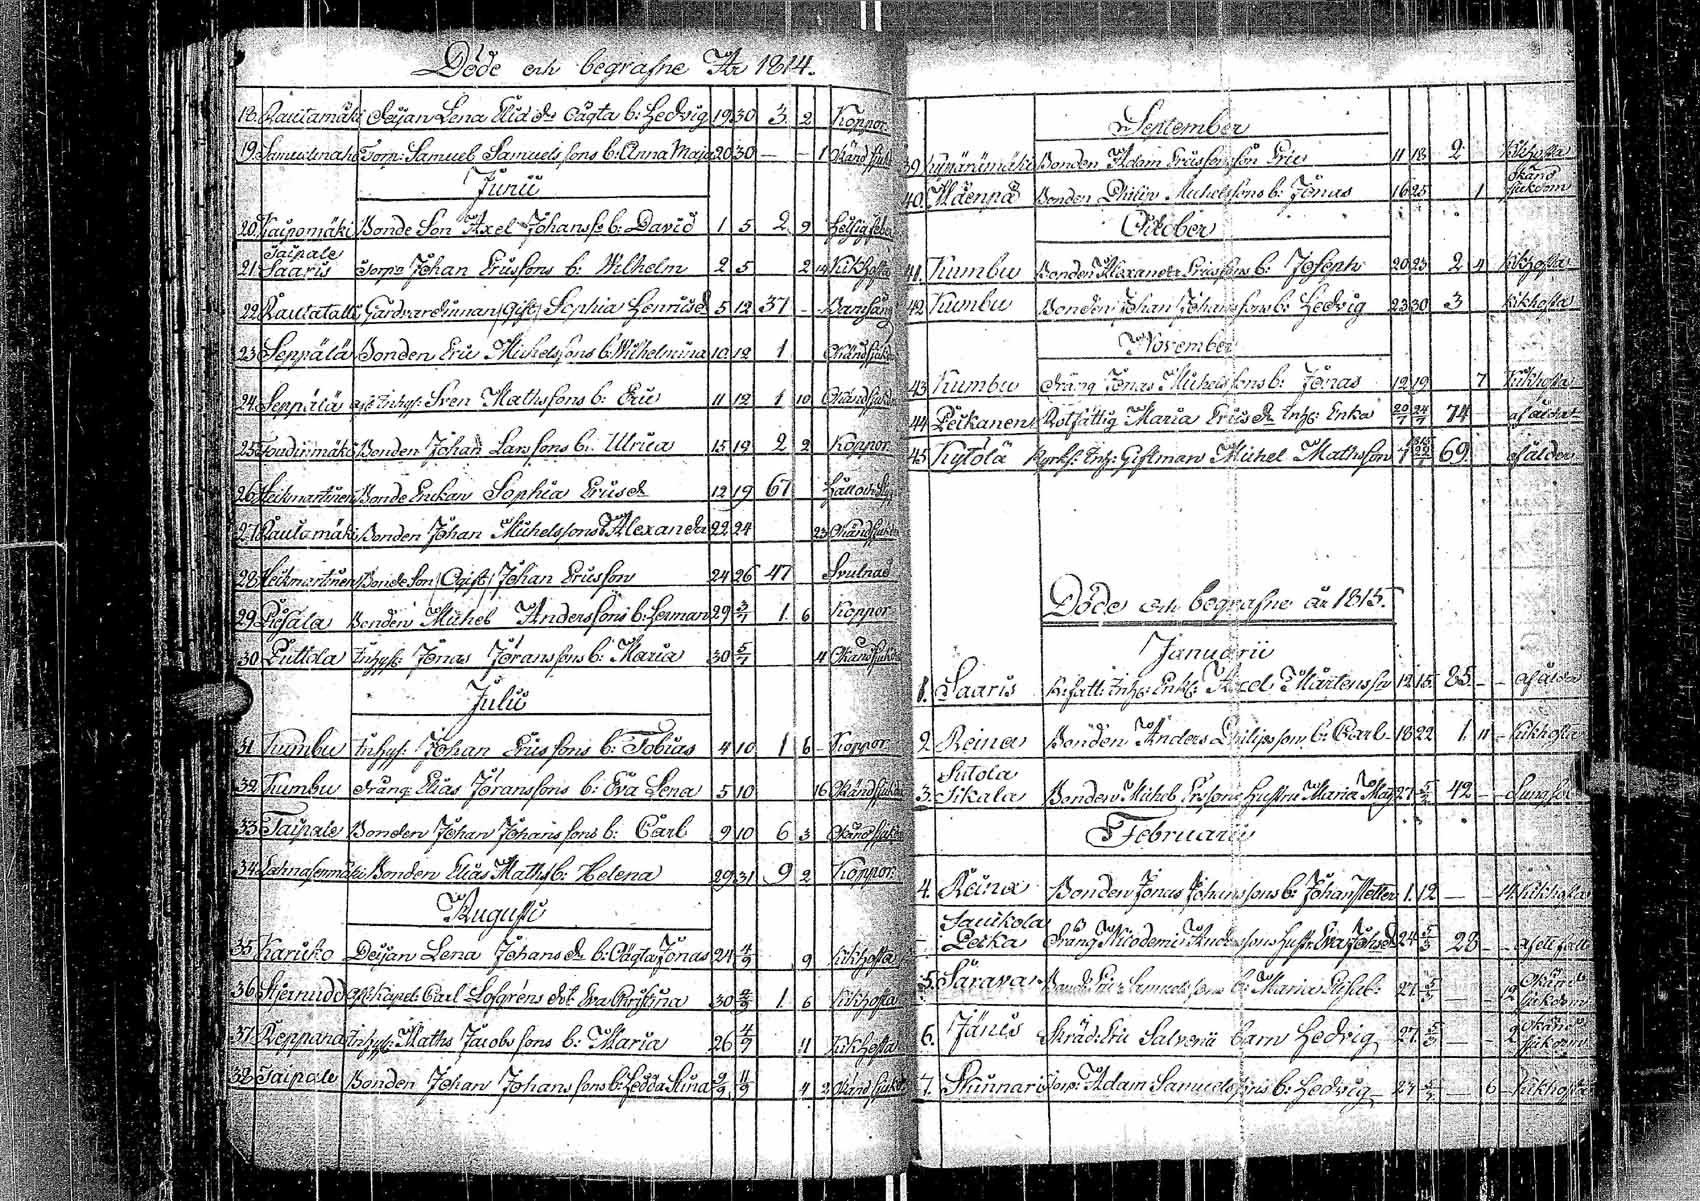 Döde och begrafne År 1814.
18. Rautamäki Pigan Lena Elias dr oägta b: Hedvig 19 30 3 2 Koppor
19. Torp: Samuel Samuelssons b: Anna Maja 20 30 — - 1 Okänd sjukd
Junii
20. Kaipomäki Bonde Son Axel Johans s: b: David 1 5 2 9 Hetsig feber
Taipale
21. Saaris Torp: Johan Erissons b: Wilhelm 2 5 2 14 Kikhosta
22. Rautatalli Gårdvardinnan (Gift) Sophia Henrisd 5 12 37 - - Barnsäng
23. Seppälä Bonden Eric Michelssons b: Wilhelmina 10 12 1 Okänd sjukd
24. Seppälä Inhys: Sven Mathssons b: Eric 11 12 1 10 Okänd sjukd
25. Bonden Johan Larssons b: Ulrica 15 19 2 2 Koppor
26. Heikmartinen Bonde Enckan Sophia Erisd. 12 19 67
27. Rautamäki Bonden Johan Michelssons b: Alexandra 22 24 23 Okänd sjukd
28. Heikmartinen Bonde Son (Ogift) Johan Ersson 24 26 47 Svulnad
29. Pösälä Bonden Michel Anderssons b: Herman 29 3/7 1 6 Koppor
30. Puttola Inhys: Jonas Jöranssons b: Maria 30 5/7 4 Okänd sjukd
Julii
31. Kumbu Inhys: Johan Erissons b: Tobias 4 10 1 6 - Koppor
32. Kumbu dräng Elias Jöranssons b: Eva Lena 5 10 16 Okänd sjukd
33. Taipale Bonden Johan Johanssons b: Carl 9 10 6 3 Okänd sjukd
34. Bonden Elias Maths b: Helena 29 31 9 2 Koppor
Augusti
35. Karisko Deijan Lena Johans dr b: Oägta Jonas 24 4/9 9 Kikhosta
36. Carl Lofgréns dot Eva Christina 30 4/9 1 6 Kikhosta
37. Reppana Inhys: Maths Jacobssons b: Maria 26 4/9 11 Kikhosta
38. Taipale Bonden Johan Johanssons b: Hedda Stina 2/9 11/9 4 2 Okänd sjukd
September
39. Bonden Adam Erissons son Eric 11 18 2 Kikhosta
40. Mäenpä Bonden Philip Michelssons b: Jonas 16 25 1 okänd sjukdom
October
41. Kumbu Bonden Alexander Ericssons b: Joseph 20 23 2 4 Kikhosta
42. Kumbu Bonden Johan Johanssons b: Hedvig 23 30 3 Kikhosta
November
43. Kumbu dräng Jonas Michelssons b: Jonas 12 19 7 Kikhosta
44. Peikanen Rotfattig Maria Erisdr Inhs: Enka 20/7 24/7 74 af ålder
45. Kytölä Kyrkf: Inh: Giftman Michel Mathsson 69 af ålder
Döde och begrafne år 1815.
Januarii
1. Saaris Inhs: Enkl: Axel Mårtensson 12 15 85 - - af ålder
2. Reina Bonden Anders Philipssons b: Carl 18 22 1 11 - Kikhosta
Sutola
3. Sikala Bonden Michel Erssons hustru Maria Maj 27 5/2 42 -
Februarii
4. Reina Bonden Jonas Johanssons b: Johan Petter 1 12 — 14 Kikhosta
Saukola
- Pecka dräng Nicodemi Anderssons hustr: Eva Johsdr 24 5/3 28 - -
5. Säravas Samuelssons b: Maria Elisab: 27 5/3 — Okänd sjukdom
6. Jänis Skräd: Eric Salvenii barn Hedvig 27 5/3 — Okänd sjukdom
7. Skinnari Torp: Adam Samuelssons b: Hedvig — 27 — 6 - Kikhosta